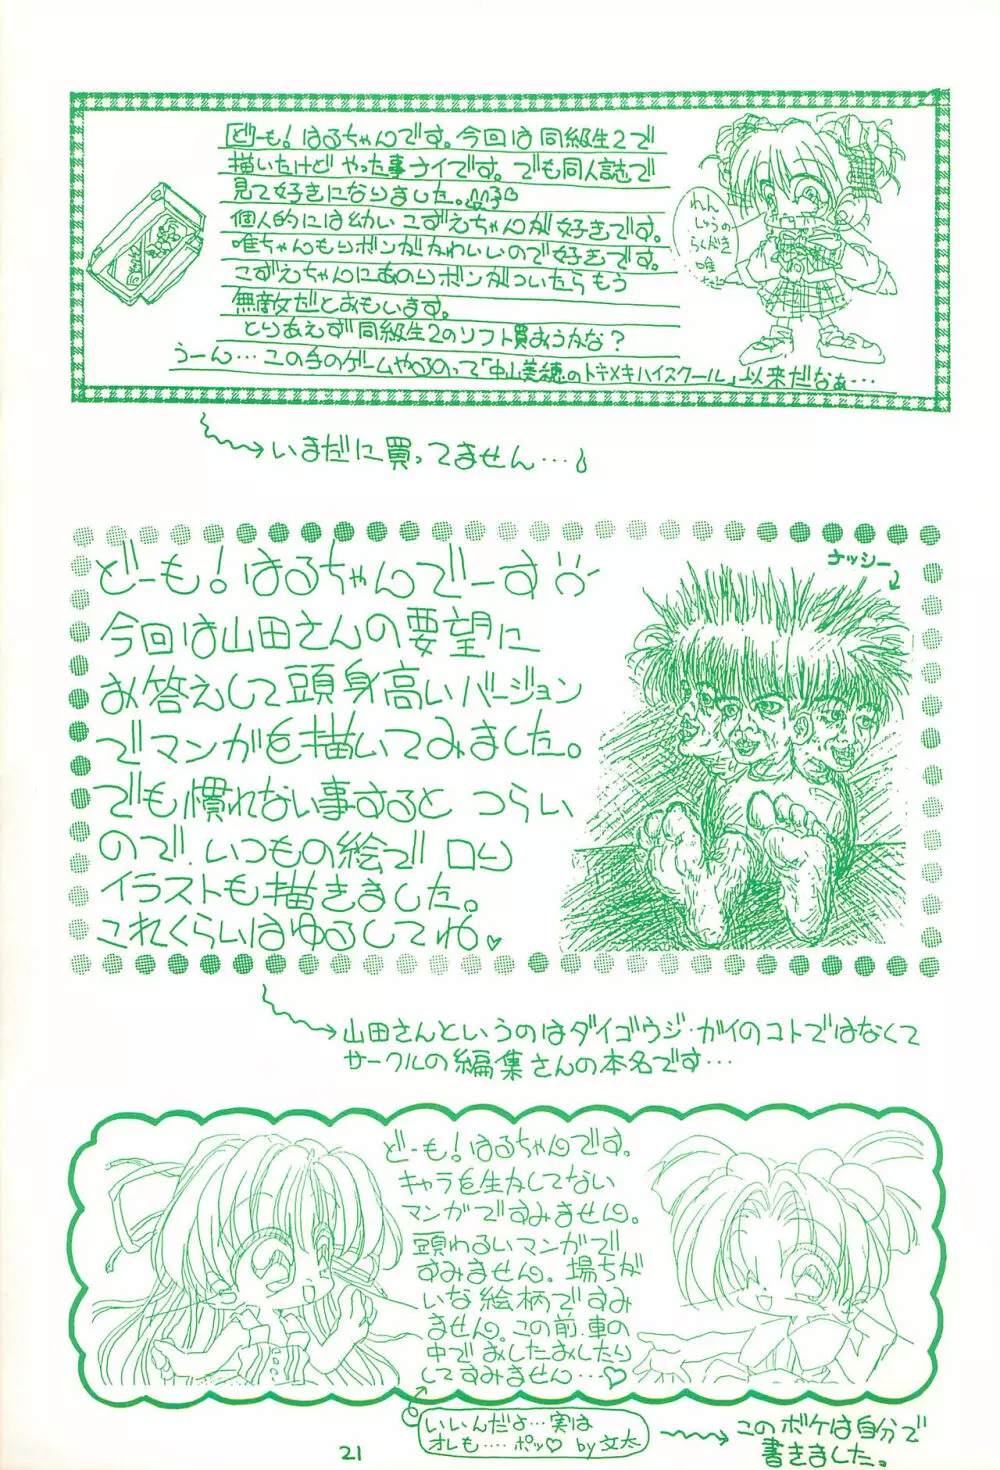 どーも！はるちゃんです。今回は同級生2で
描いたけどやった事ナイです。でも同人誌で
見て好きになりました。
個人的には幼いこずえちゃんが好きです。
唯ちゃんもリボンがかわいいので好きです。
こずえちゃんにあのリボンがついたらもう
無敵だとおもいます。
とりあえず同級生2のソフト買おうかな？
うーん…この手のゲームやるのって「中山美穂のトキメキハイスクール」以来だなぁ…
れん
しゅうの
らくがき
唯
いまだに買ってません…
どーも！はるちゃんでーす
今回は山田さんの要望に
お答えして頭身高いバージョン
でマンガを描いてみました。
でも慣れない事すると つらい
ので、いつもの絵で ロリ
イラストも描きました。
これくらいはゆるしてね♡
ナッシー
山田さんというのはダイゴウジ・ガイのコトではなくて
サークルの編集さんの本名です…
どーも！はるちゃんです。
キャラを生かしてない
マンガですみません。
頭わるいマンガで
すみません。場ちが
いな絵柄ですみ
ません。この前、車の
中でおしたおしたり
してすみません…♡
いいんだよ…実は
オレも…ポッ♡ by 文太
このボケは自分で
書きました。
21